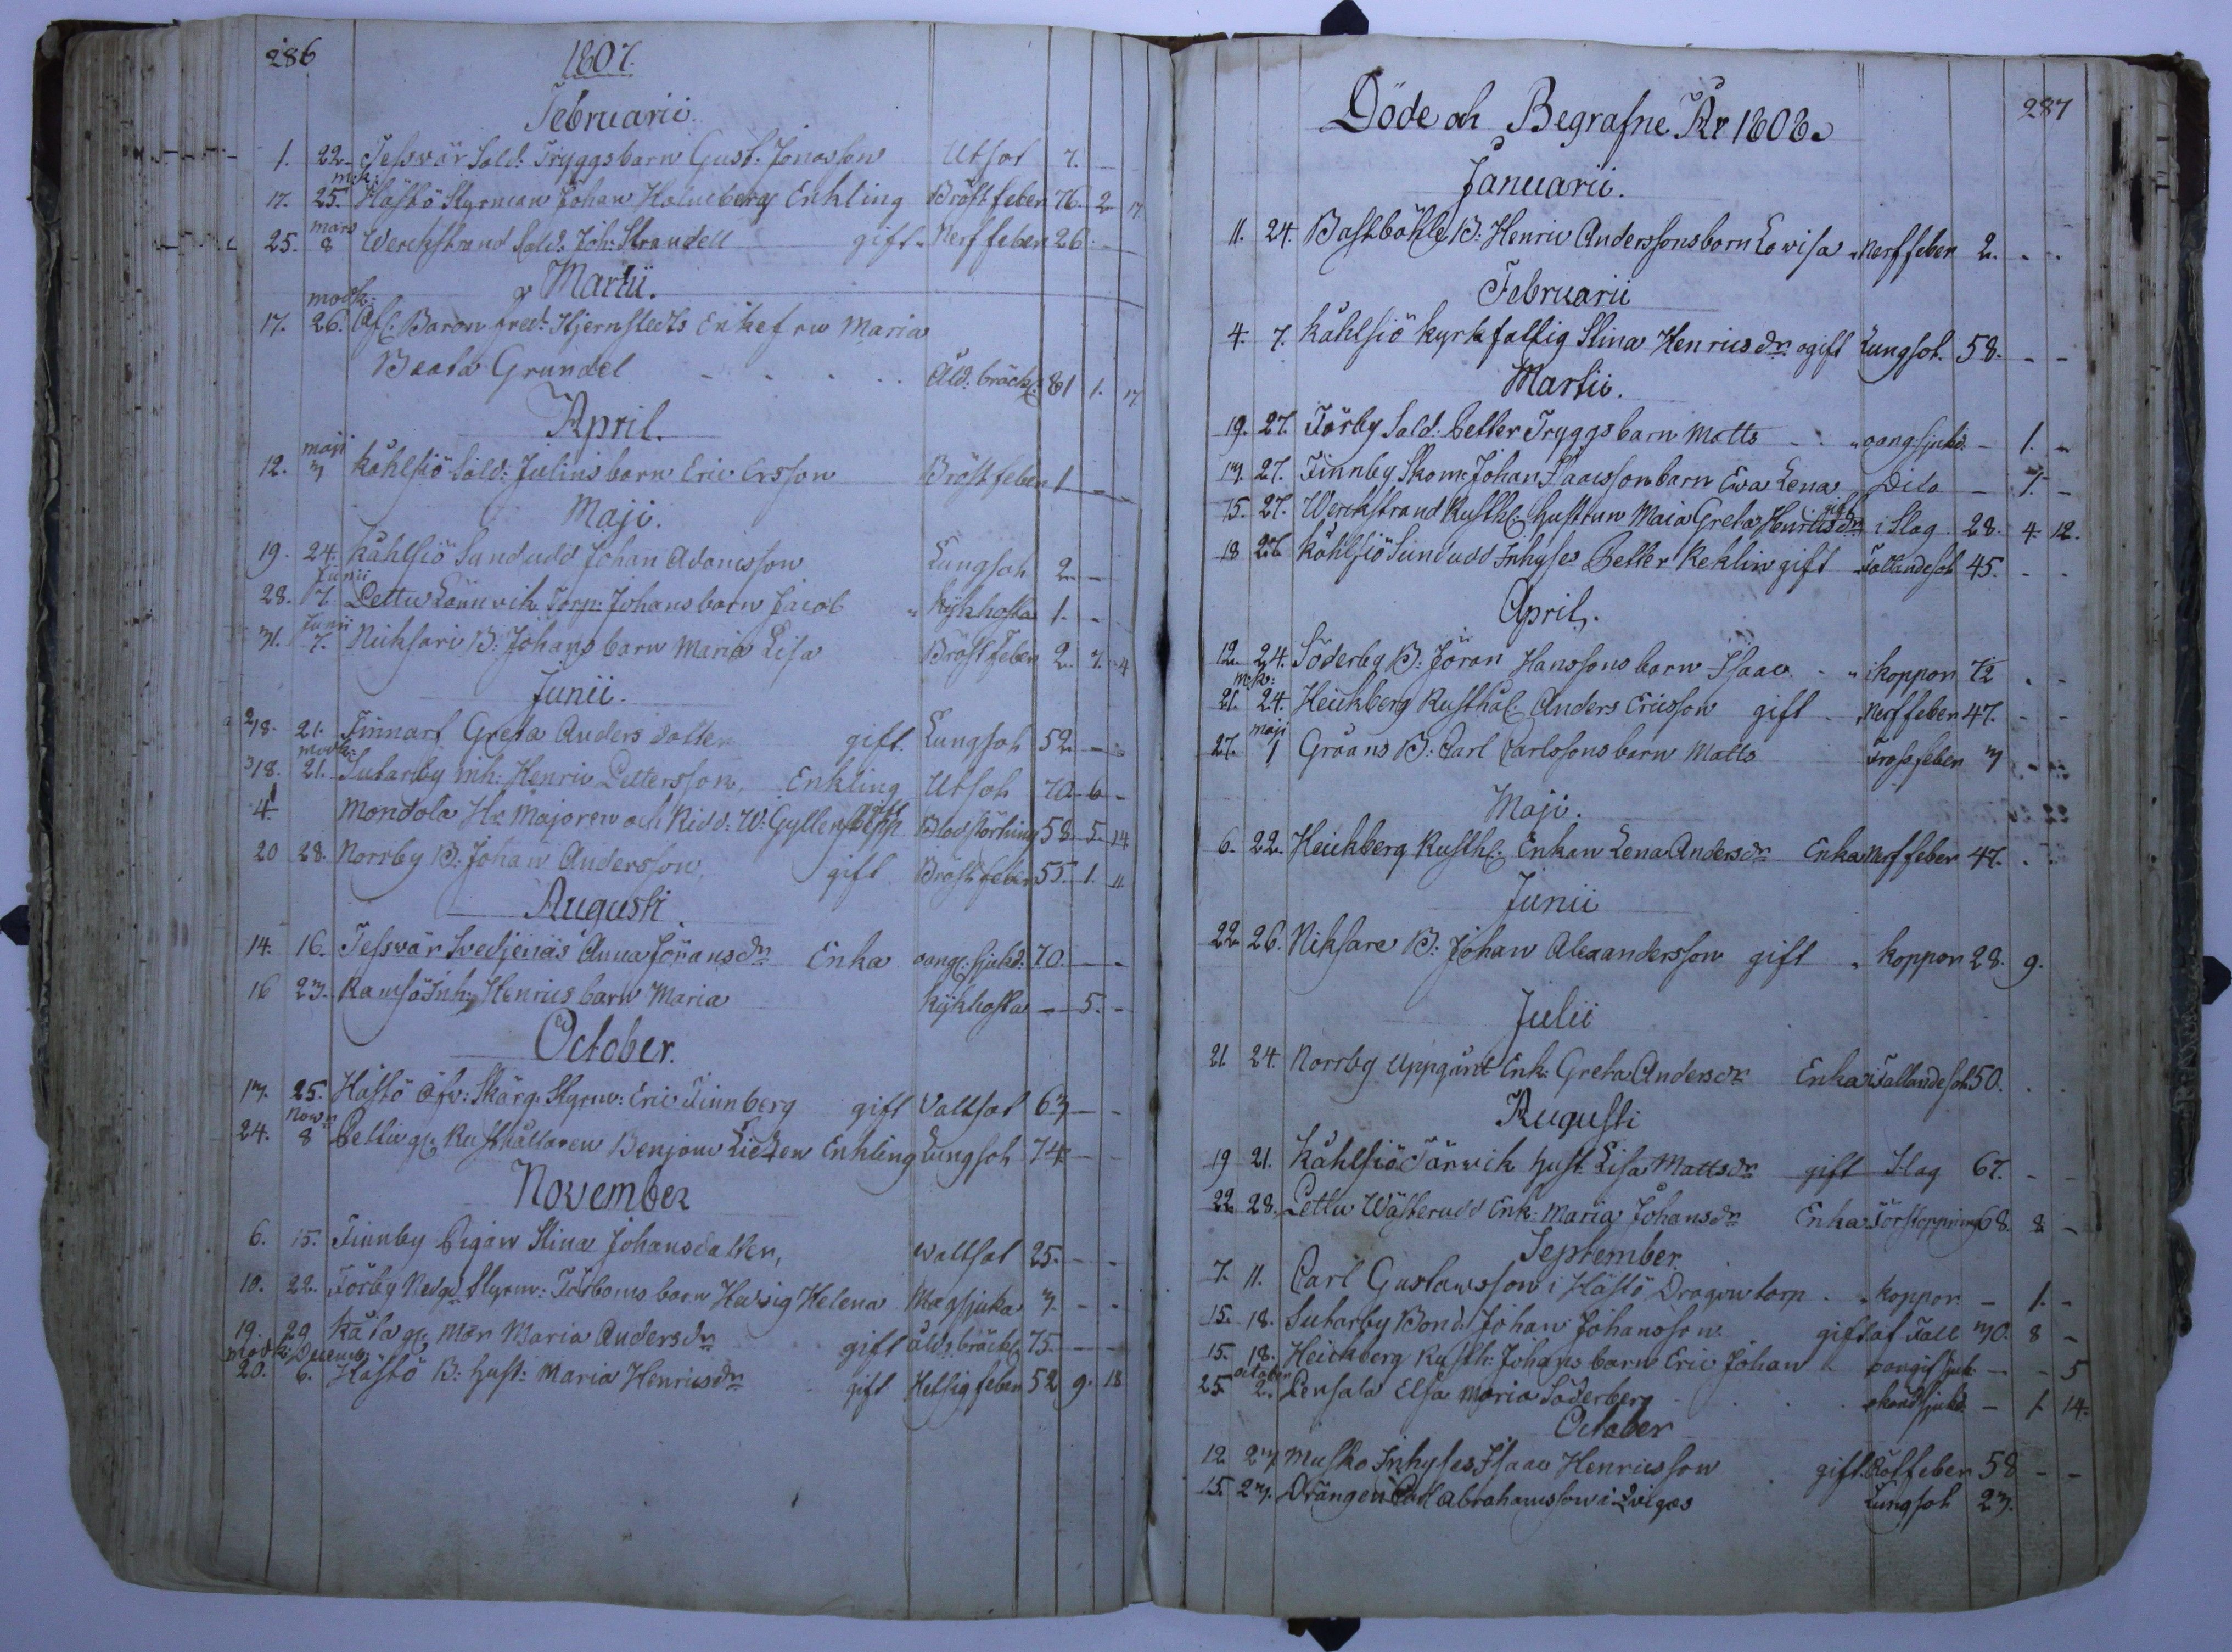 286
1807.
Februarii.
1. 22. Tessvär Sold: Tryggs barn Gust: Jonasson Utsot 7. –
mok:
17. 25. Hästö Styrman Johan Holmberg Enkling Bröstfeber 76. 2 17
mars
25. 8 Werckstrand Sold: Joh: Strandell gift Nerffeber 26. –
Martii.
modk:
17. 26. Afl: Baron Fred: Stjernstedts Enkefru Maria
Beata Grundel – – – Åld: bräckl: 81 1. 17
April.
maji
12. 3 Kåhlsiö Sold: Julins barn Eric Ersson Bröstfeber 1 – –
Maji.
19. 24. Kåhlsiö Sundudd Johan Adamsson Lungsot 2. –
Junii
28. 7. Pettu Lönnvik Torp: Johans barn Jacob Kykhosta 1. –
Junii
31. 7. Nicksari B: Johans barn Maria Lisa Bröstfeber 2. 7. 4
Junii.
218. 21. Finnarf Greta Anders dotter gift. Lungsot 52. – –
modk:
318. 21. Sutarby inh: Henric Pettersson, Enkling Utsot 70 6 –
4 Mondola Hr Majoren och Ridd: W: Gyllenbepp gift Blodstörtning 58. 5. 14
20 28. Norrby B: Johan Andersson, gift Bröstfeber 55. 1. 11
Augusti.
14. 16. Tessvär Svedjenäs Anna Jöransdr Enka oangl: sjukd: 70. – –
16 23. Ramsö Inh: Henrics barn Maria Kykhosta – 5. –
October.
13. 25. Hästö Öfv: Skärg: Styrm: Eric Finnberg gift Vattsot 63 – –
Novr
24. 8 Pettu gl: Rusthållaren Benjam: Lietzen Enkling Lungsot 74 – –
November
6. 15. Finnby Pigan Stina Johansdotter, Wattsot 25. – –
10. 22. Förby Nedgd Styrm: Förboms barn Hedvig Helena Magsjuka 3. – –
19. 29 Kåla gl: Mor Maria Andersdr gift åld: bräckl: 75. – –
modk: Decemb:
20. 6. Hästö B: hust: Maria Henricsdr gift Hetsig feber 52 9. 18
287
Döde och Begrafne År 1808.
Januarii.
11. 24. Bastböhle B: Henric Anderssons barn Lovisa Nerffeber 2. . .
Februarii
4. 7. Kåhlsiö kyrkfattig Stina Henricsdr ogift Lungsot. 58. – –
Martii.
19. 27. Förby Sold: Petter Tryggs barn Matts – oang: sjukd: – 1. –
13. 27. Finnby Skom: Johan Isaacsson barn Eva Lena Dito – 7. –
15. 27. Werckstrand Rusth: hustrun Maia Greta Henricsdr gift i Slag 28. 4. 12.
18 27. Kåhlsiö Sundudd Inhyses Petter Keklin gift Fallandesot 45. – –
April.
12. 24. Söderby B: Jöran Hanssons barn Isaac – i koppor 72 . –
m:k:
21. 24. Heickberg Rusthål: Anders Ericsson gift – Nerffeber 47. – –
maji
27. 1 Gråans B: Carl Carlssons barn Matts Frossfeber 3
Maji.
6. 22. Heickberg Rusth: Enkan Lena Andersdr Enka Nerffeber 47. . .
Junii
22. 26. Niksare B: Johan Alexandersson gift koppor 28. 9.
Julii
21 24. Norrby Uppgånt Enk: Greta Andersdr Enka i Fallandesot 50. .
Augusti
19 21. Kåhlsiö Tärwik hust: Lisa Mattsdr gift Slag 67. – –
22. 28. Pettu Wästerudd Enk: Maria Johansdr Enka Förstoppning 68. 8 –
September.
7. 11. Carl Gustavsson i Hästö Dragon torp koppor – 1. –
15. 18. Sutarby Bond: Johan Johansson gift af Fall 30. 8 –
15. 18. Heickberg Rusth: Johans barn Eric Johan oangif: sjuk: – – 5
october
25. 2. Pensala Elsa Maria Söderberg okänd sjukd: – 1 14.
October
12. 23. Musko Inhyses Isaac Henricsson gift. Rötfeber 58 – –
15. 23. Drängen Carl Abrahamsson i Lungsot 23.